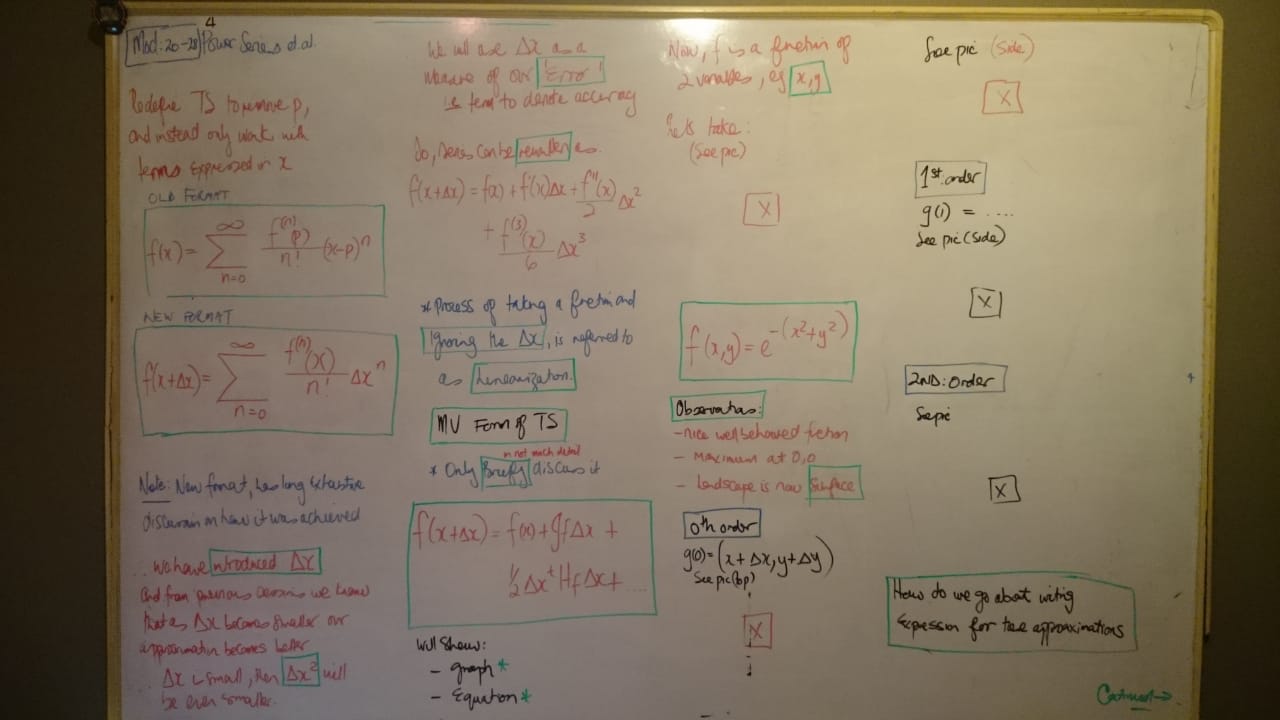 4
Mod: 20-28 Power Series et.al.
Redefine TS to remove p,
and instead only work with
terms expressed in x
OLD FORMAT
f(x) = ∑_{n=0}^{∞} f^{(n)}(p)/n! (x-p)^n
NEW FORMAT
f(x+Δx) = ∑_{n=0}^{∞} f^{(n)}(x)/n! Δx^n
Note: New format, has long exhaustive
discussion on how it was achieved
∴ We have introduced Δx
and from previous we know
that as Δx becomes smaller our
approximation becomes better
∴ Δx is small, then Δx² will
be even smaller.
We will use Δx as a
measure of our 'Error'
ie term to denote accuracy
So, series can be rewritten as
f(x+Δx) = f(x) + f'(x)Δx + f''(x)/2 Δx²
+ f^{(3)}(x)/6 Δx³
* Process of taking a function and
ignoring the Δx, is referred to
as Linearization.
MV Form of TS
in not much detail
* Only Briefly discuss it
f(x+Δx) = f(x) + Jf Δx +
½ Δx^t Hf Δx + ...
Will show:
- graph *
- Equation *
Now, f is a function of
2 variables, eg x,y
Let's take:
(See pic)
X
f(x,y) = e^{-(x²+y²)}
Observations:
- nice well behaved function
- Maximum at 0,0
- Landscape is now Surface
0th order
g(0) = (x+Δx, y+Δy)
See pic (top)
X
See pic (side)
X
1st. order
g(1) = ....
See pic (side)
X
2ND: Order
See pic
X
How do we go about writing
Expression for these approximations
Continued →